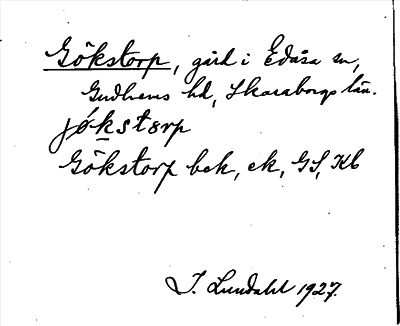 Gökstorp, gård i Edåsa sn,
Gudhems hd, Skaraborgs län.
jøkstørp
Gökstorp bek, ek, GS, Kb
I. Lundahl 1927.